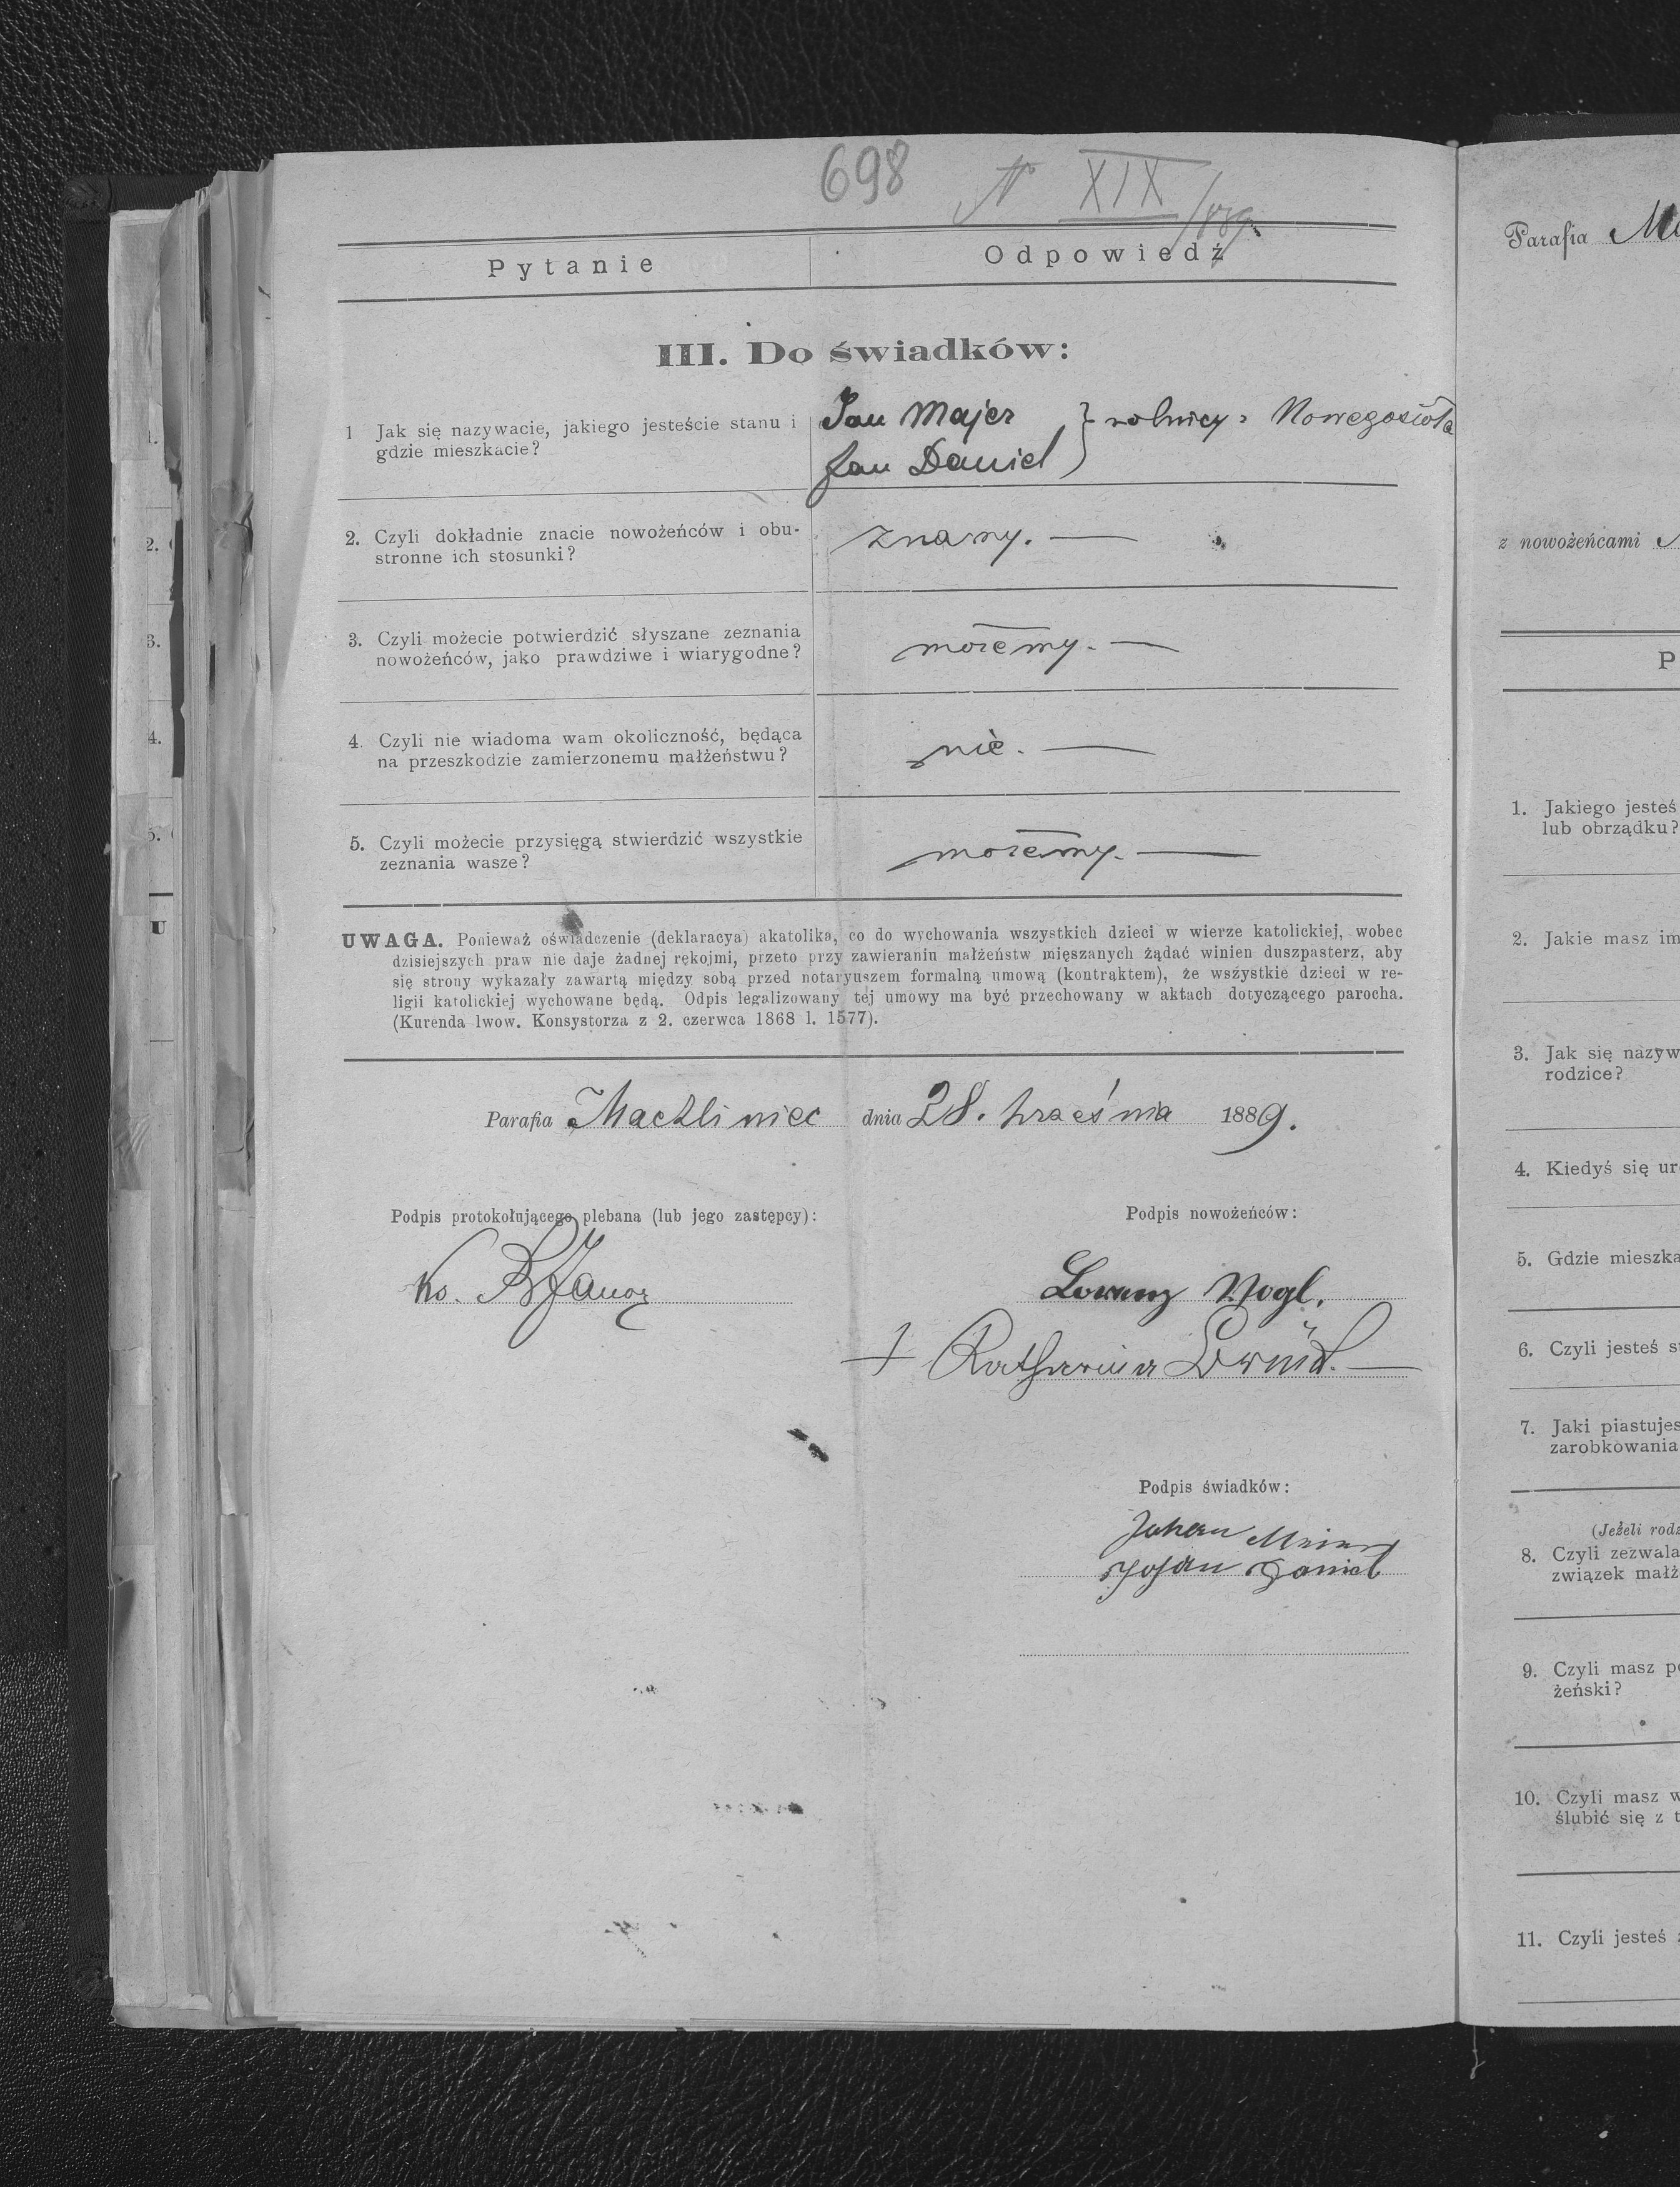 698 N XIX/889.
Pytanie Odpowiedź
III. Do świadków:
1 Jak się nazywacie, jakiego jesteście stanu i
gdzie mieszkacie?
Jan Majer } rolnicy z Nowegosioła
Jan Daniel
2. Czyli dokładnie znacie nowożeńców i obu-
stronne ich stosunki?
znamy. —
3. Czyli możecie potwierdzić słyszane zeznania
nowożeńców, jako prawdziwe i wiarygodne?
możemy. —
4. Czyli nie wiadoma wam okoliczność, będąca
na przeszkodzie zamierzonemu małżeństwu?
nie. —
5. Czyli możecie przysięgą stwierdzić wszystkie
zeznania wasze?
możemy. —
UWAGA. Ponieważ oświadczenie (deklaracya) akatolika, co do wychowania wszystkich dzieci w wierze katolickiej, wobec
dzisiejszych praw nie daje żadnej rękojmi, przeto przy zawieraniu małżeństw mięszanych żądać winien duszpasterz, aby
się strony wykazały zawartą między sobą przed notaryuszem formalną umową (kontraktem), że wszystkie dzieci w re-
ligii katolickiej wychowane będą. Odpis legalizowany tej umowy ma być przechowany w aktach dotyczącego parocha.
(Kurenda lwow. Konsystorza z 2. czerwca 1868 l. 1577).
Parafia Machliniec dnia 28. września 1889.
Podpis protokołującego plebana (lub jego zastępcy):
Podpis nowożeńców:
Lorenz Vogl.
+ Katharina
Podpis świadków:
Johan
Johan Daniel
Parafia
z nowożeńcami
P
1. Jakiego jesteś
lub obrządku?
2. Jakie masz im
3. Jak się nazyw
rodzice?
4. Kiedyś się ur
5. Gdzie mieszka
6. Czyli jesteś s
7. Jaki piastujes
zarobkowania
(Jeżeli rodz
8. Czyli zezwala
związek małż
9. Czyli masz p
żeński?
10. Czyli masz w
ślubić się z t
11. Czyli jesteś